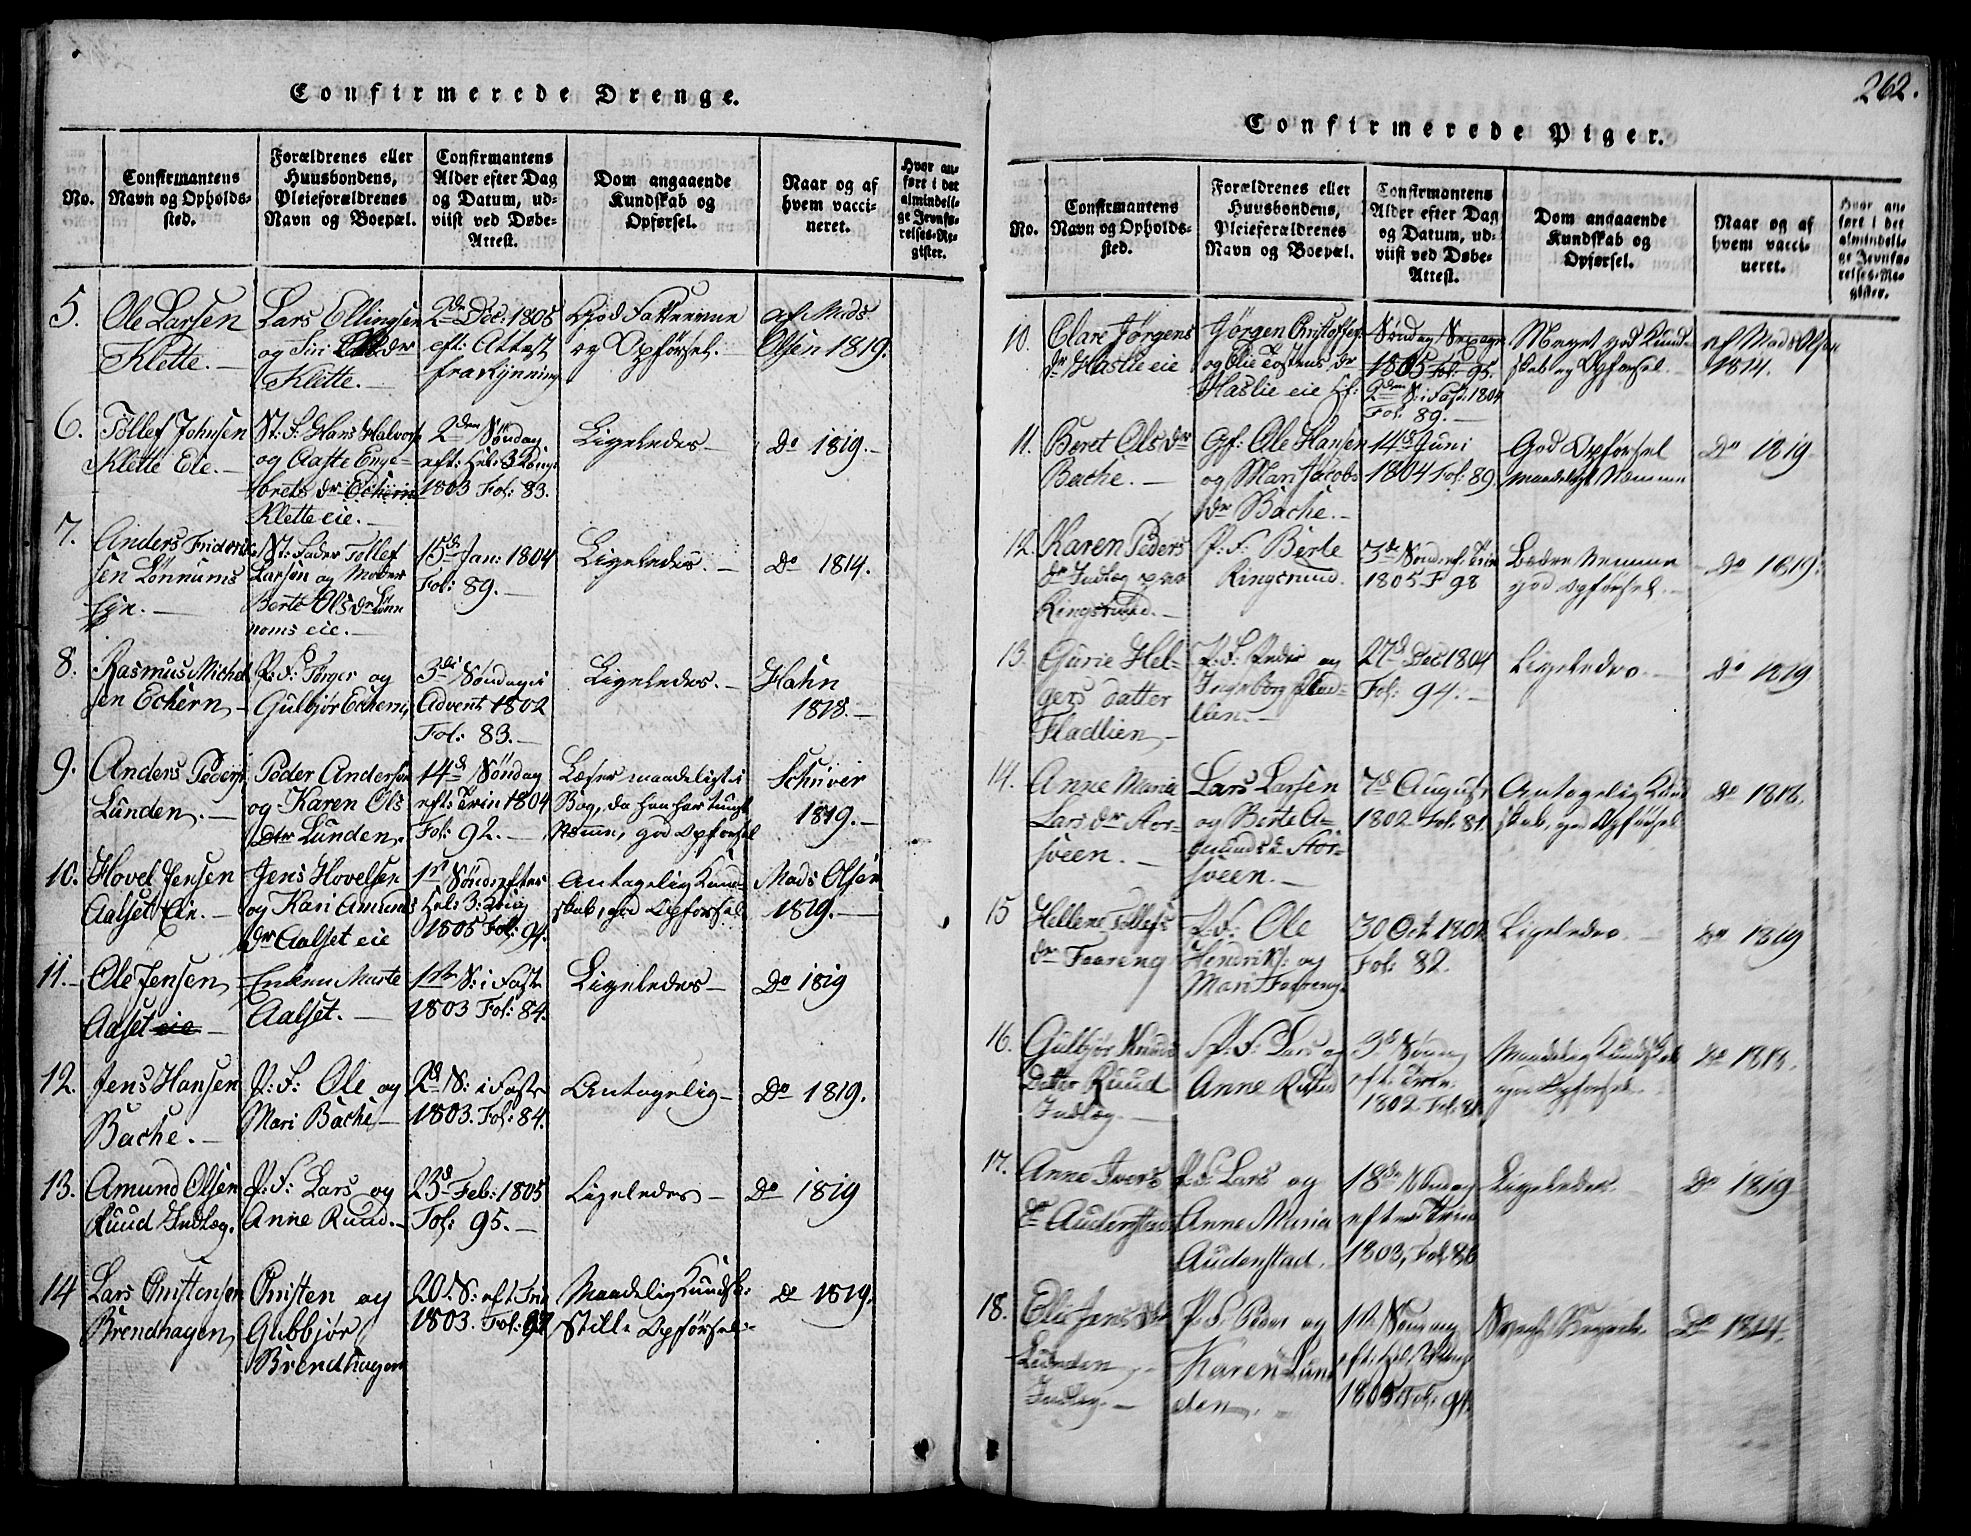 Confirmerede Drenge.
No.
Confirmantens
Navn og Opholds-
sted.
Forældrenes eller
Huusbondens,
Pleieforældrenes
Navn og Boepæl.
Confirmantens
Alder efter Dag
og Datum, ud-
viist ved Døbe-
Attest.
Dom angaaende
Kundskab og
Opførsel.
Naar og af
hvem vacci-
neret.
Hvor an-
ført i det
almindeli-
ge Jevnfø-
relses-Re-
gister.
5.
Ole Larsen
Klette.
Lars Ellingsen
og Siri dr
Klette.
2den Dec: 1805
eft: Attest
fra Rynning
God Fatteevne
og Opførsel.
af Mads
Olsen 1819.
6.
Tollef Johnsen
Klette Eie. —
St: F: Hans Halvors
og Aatte Enge-
brets dr Echern
Klette eie. —
2den Søndag
eft: Hel: 3 Kong:
1803 Fol: 83.
Ligeledes —
Do 1819. —
7.
Anders Frideric-
sen Lønnums
Eje. —
St: Fader Tollef
Larsen og Moder
Berte Ols dr Løn
noms eie. —
15d Jan: 1804
Fol: 89. —
Ligeledes. —
Do 1814.
8.
Rasmus Michel
sen Echern —
P: F: Torger og
Gulbjør Echern,
3die Søndag i
Advent 1802
Fol: 83. —
Ligeledes. —
Hahn
1818. —
9.
Anders Peders
Lunden. —
Peder Andersen
og Karen Ols
dr Lunden.
14d Søndag
eft: Trin 1804
Fol: 92. —
Læser maadeligt i
Bog, da han har tungt
Nemme, god Opførsel
Schiiver
1819. —
10.
Hovel Jensen
Aalset Eie. —
Jens Hovelsen
og Kari Amunds
dr Aalset eie
1ste Sønd: efter
Hel: 3: Kong
1805 Fol: 94.
Antagelig Kund-
skab, god Opførsel
Mads Olsen
1819. —
11. —
Ole Jensen
Aalset eie —
Enken Marte
Aalset. —
1ste S: i Fast
1803 Fol: 84.
Ligeledes —
Do 1819
12.
Jens Hansen
Bache. —
P: F: Ole og
Mari Bache —
2d S: i Faste
1803. Fol: 84.
Antagelig —
Do 1819.
13.
Amund Olsen
Ruud Indlæg.
P: F: Lars og
Anne Ruud. —
23d Feb: 1805
Fol: 95. —
Ligeledes —
Do 1819
14
Lars Christensen
Brendhagen
Christen og
Gubbjør
Brendhagen
20. S: eft: Tri
1803. Fol:
Maadelig Kundsk:
Stille Opførsel
Do 1819.
262.
Confirmerede Piger.
No.
Confirmantens
Navn og Opholds-
sted.
Forældrenes eller
Huusbondens,
Pleieforældrenes
Navn og Boepæl.
Confirmantens
Alder efter Dag
og Datum, ud-
viist ved Døbe-
Attest.
Dom angaaende
Kundskab og
Opførsel.
Naar og af
hvem vacci-
neret.
Hvor an-
ført i det
almindeli-
ge Jevnfø-
relses-Re-
gister.
10.
Clare Jørgens
dr Haslie eie
Jørgen Christoffer
og Olie Tostens dr
Haslie eie
Søndag Sexages
1805 Fol: 95.
2den S: i Fast: 1804
Fol: 89. —
Meget god Kund-
skab og Opførsel. —
af Mads Olsen
1814.
11.
Beret Ols dr
Bache. —
Gf: Ole Hansen
og Mari Jacobs
dr Bache. —
14d Juni
1804 Fol: 89.
God Opførsel
maadeligt Nemme
Do 1819
12.
Karen Peders
dr Indlæg paa
Ringsrund. —
P: F: Berte
Ringsrund.
3de Sønd: ef: Trin
1805 F 98
Bedre Nemme
god Opførsel. —
Do 1819.
13.
Gurie Hel-
gers datter
Fladlien —
P: F: Peder og
Ingeborg Flad-
lien. —
27d Dec 1804
Fol: 94. —
Ligeledes. —
Do 1819
14.
Anne Marie
Lars dr Stor-
sveen. —
Lars Larsen
og Berte A-
munds d: Stor-
sveen. —
7d August
1802 Fol: 81.
Antagelig Kund
skab, god Opførsel
Do 1818.
15
Hellene Tollefs
dr Faareng
P: F: Ole
Hendriks: og
Mari Faareng.
30 Oct. 1802
Fol: 82.
Ligeledes. —
Do 1819
16.
Gulbjør Knuds
Datter Ruud
Indlæg. —
P: F: Lars og
Anne Ruud
3d Søndag
eft: Trin.
1802. Fol: 81
Maadelig Kundskab
god Opførsel.
Do 1818.
17.
Anne Ivers
dr Audenstad
P: F: Lars og
Anne Maria
Audenstad.
18de Søndag
efter Trin
1803, Fol: 86
Ligeledes.
Do 1819
18.
Elie Jens dr
Lunden —
Indlæg. —
P: F: Peder og
Karen Lun
den. —
1ste Søndag
eft: Hel:
1805 Fol: 94.
Do 1814.